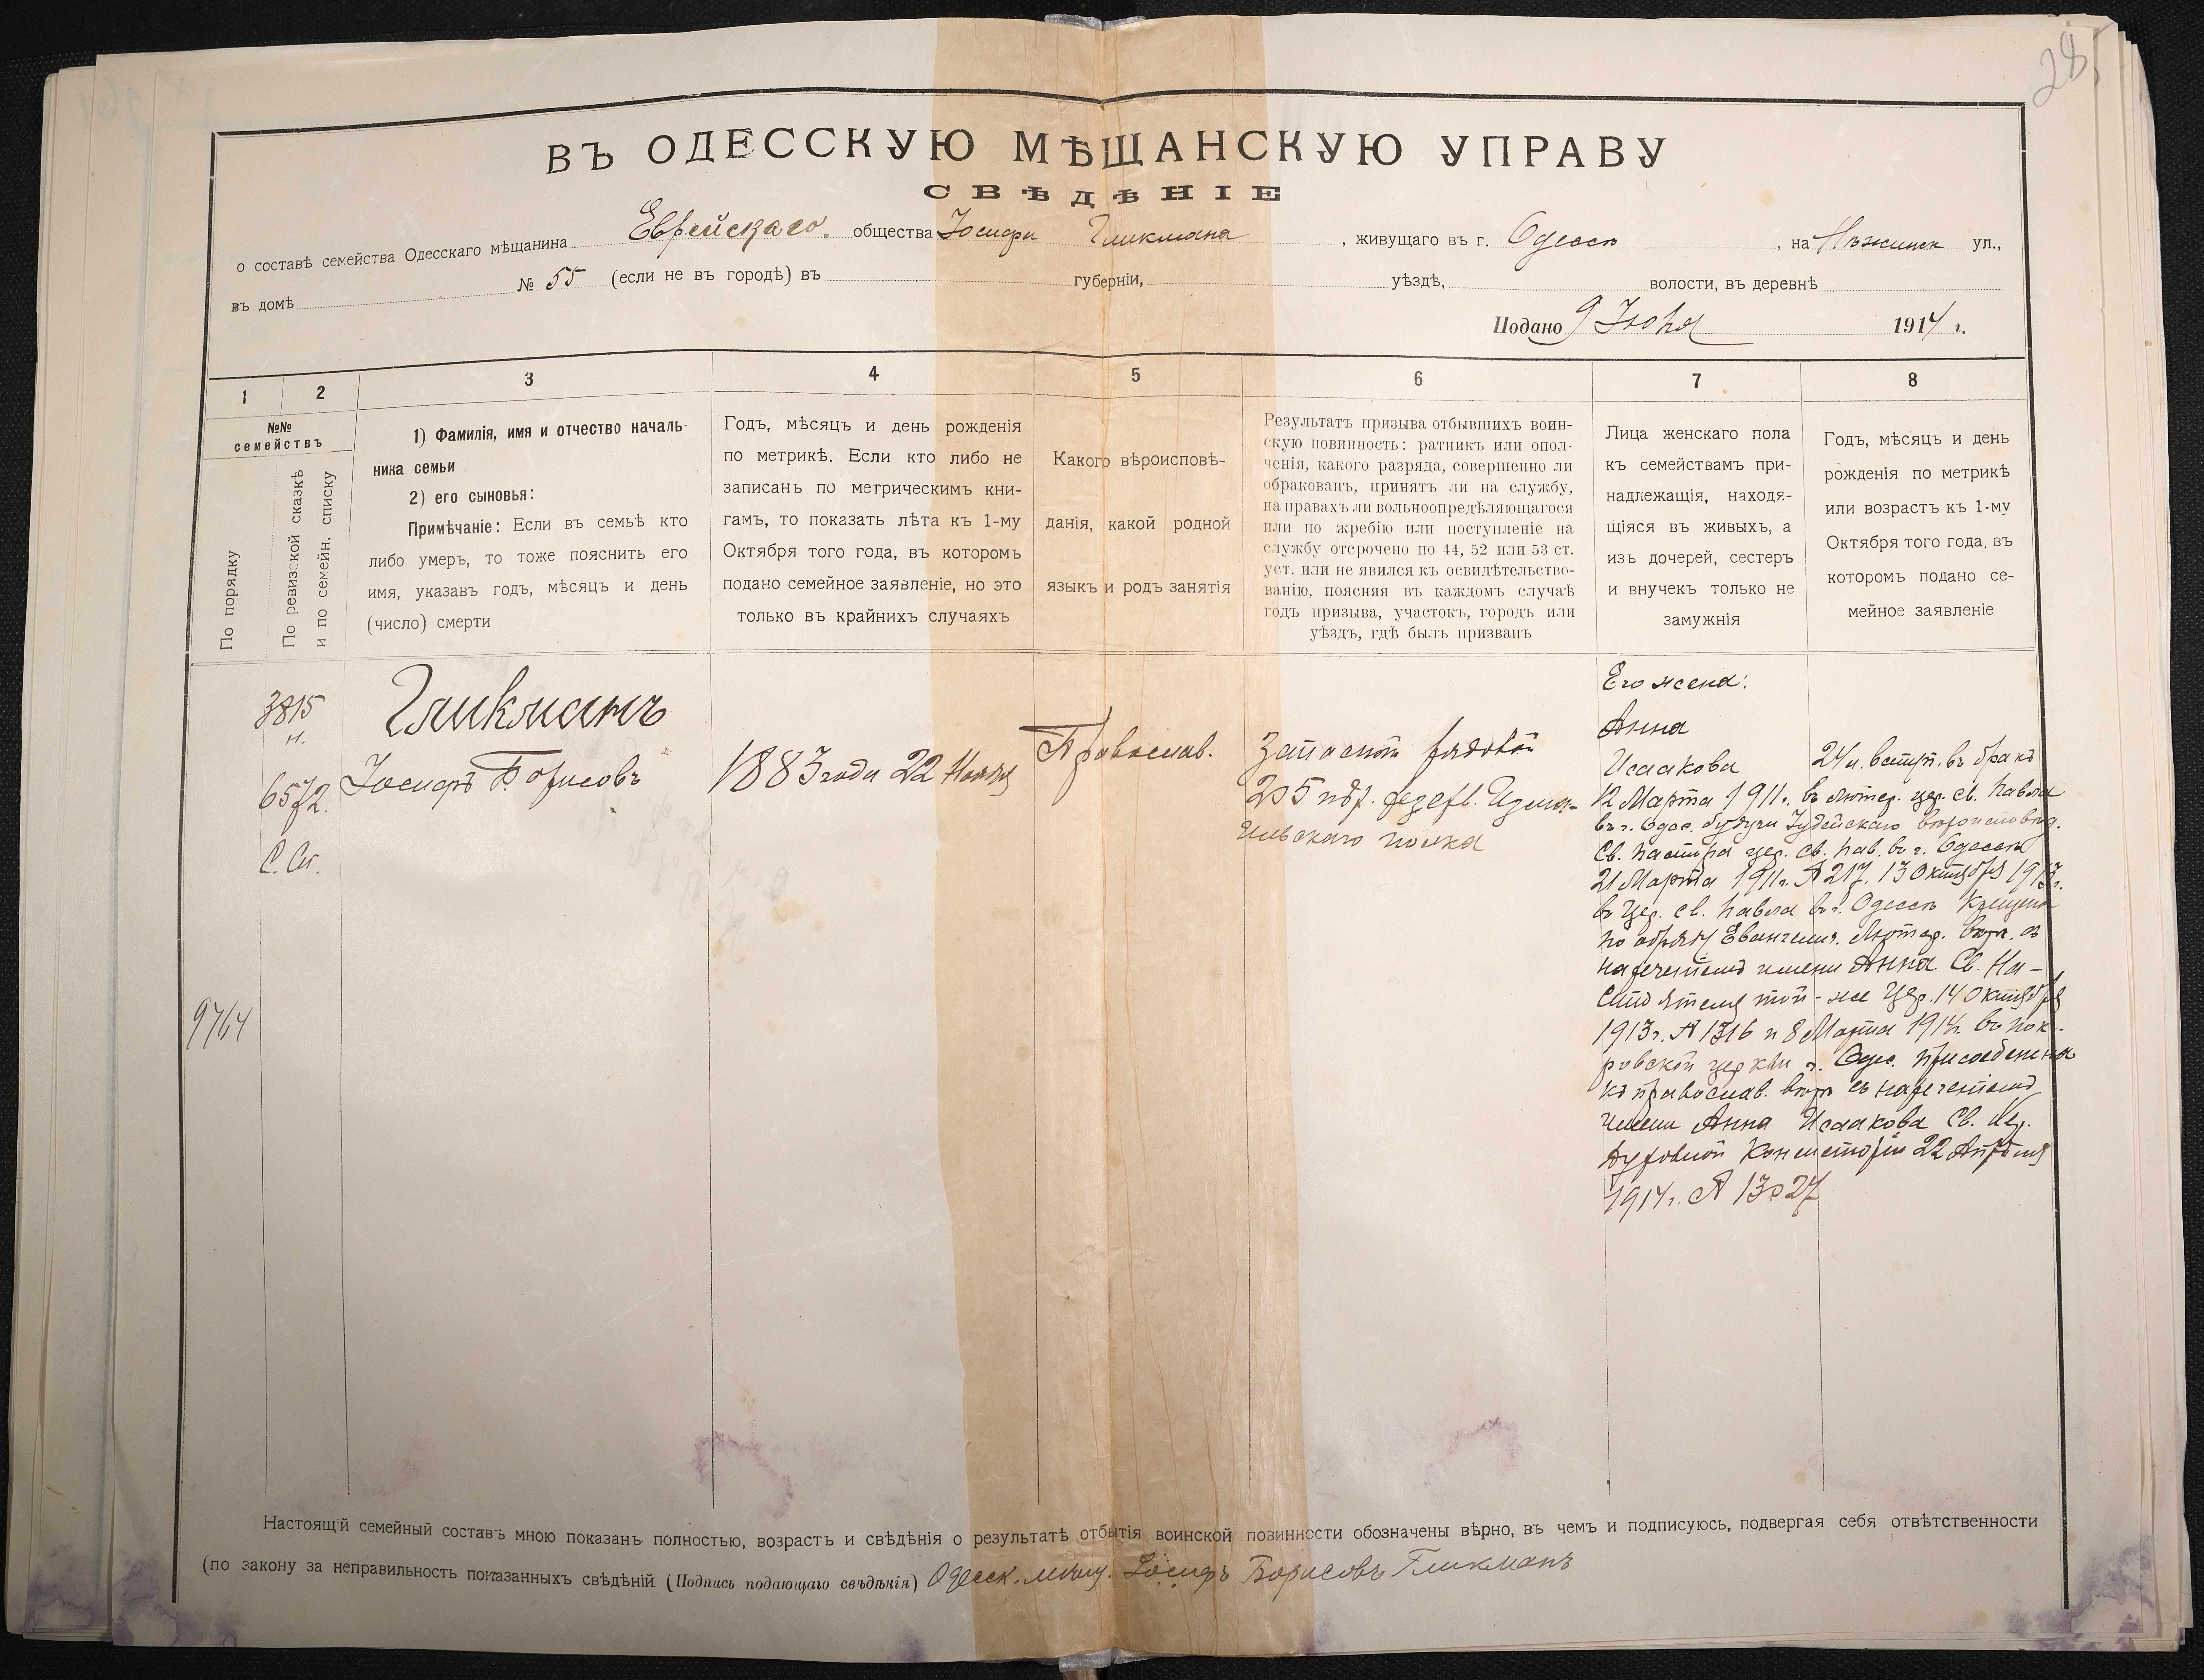 28
ВЪ ОДЕССКУЮ МѢЩАНСКУЮ УПРАВУ
СВѢДѢНІЕ
о составѣ семейства Одесскаго мѣщанина Еврейскаго. общества Іосифа Гликмана, живущаго въ г. Одессѣ, на Нѣжинск ул.,
въ домѣ № 55 (если не въ городѣ) въ губерніи, уѣздѣ, волости, въ деревнѣ
Подано 9 Іюня 1914 г.
1 2 3 4 5 6 7 8
№№
семействъ
По порядку
По ревизской сказкѣ
и по семейн. списку
1) Фамилія, имя и отчество началь-
ника семьи
2) его сыновья:
Примѣчаніе: Если въ семьѣ кто
либо умеръ, то тоже пояснить его
имя, указавъ годъ, мѣсяцъ и день
(число) смерти
Годъ, мѣсяцъ и день рожденія
по метрикѣ. Если кто либо не
записанъ по метрическимъ кни-
гамъ, то показать лѣта къ 1-му
Октября того года, въ которомъ
подано семейное заявленіе, но это
только въ крайнихъ случаяхъ
Какого вѣроисповѣ-
данія, какой родной
языкъ и родъ занятія
Результатъ призыва отбывшихъ воин-
скую повинность: ратникъ или опол-
ченія, какого разряда, совершенно ли
обракованъ, принятъ ли на службу,
на правахъ ли вольноопредѣляющагося
или по жребію или поступленіе на
службу отсрочено по 44, 52 или 53 ст.
уст. или не явился къ освидѣтельство-
ванію, поясняя въ каждомъ случаѣ
годъ призыва, участокъ, городъ или
уѣздъ, гдѣ былъ призванъ
Лица женскаго пола
къ семействамъ при-
надлежащія, находя-
щіяся въ живыхъ, а
изъ дочерей, сестеръ
и внучекъ только не
замужнія
Годъ, мѣсяцъ и день
рожденія по метрикѣ
или возрастъ къ 1-му
Октября того года, въ
которомъ подано се-
мейное заявленіе
9764
3815
н.
6572
С. Сп.
Гликманъ
Іосифъ Борисовъ
1883 года 22 Ноября
Православ.
Запасной рядовой
205 пѣх. резерв. Измаи-
ильскаго полка
Его жена:
Анна
Исаакова 24 л. вступ. въ бракъ
12 Марта 1911 г. въ лютер. цер. св. Павла
въ г. Одес. будучи Іудейскаго вѣроисповѣд.
Св. пастора цер. св. Пав. въ г. Одессѣ
21 Марта 1911 г. № 217. 13 Октября 1913 г.
въ Цер. св. Павла въ г. Одессѣ Крещена
по обряду Евангелич. Лютер. вѣр. съ
нареченіемъ имени Анна Св. На-
стоятеля той-же Цер. 14 Октября
1913 г. № 1316 и 8 Марта 1914 г. въ пок-
ровской церкви г. Одес. присоединена
къ православ. вѣрѣ съ нареченіемъ
имени Анна Исаакова Св.
Духовной Консисторіи 22 Апрѣля
1914 г. № 13027
Настоящій семейный составъ мною показанъ полностью, возрастъ и свѣдѣнія о результатѣ отбытія воинской повинности обозначены вѣрно, въ чемъ и подписуюсь, подвергая себя отвѣтственности
(по закону за неправильность показанныхъ свѣдѣній (Подпись подающаго свѣдѣнія) Одесск. мѣщ. Іосифъ Борисовъ Гликманъ